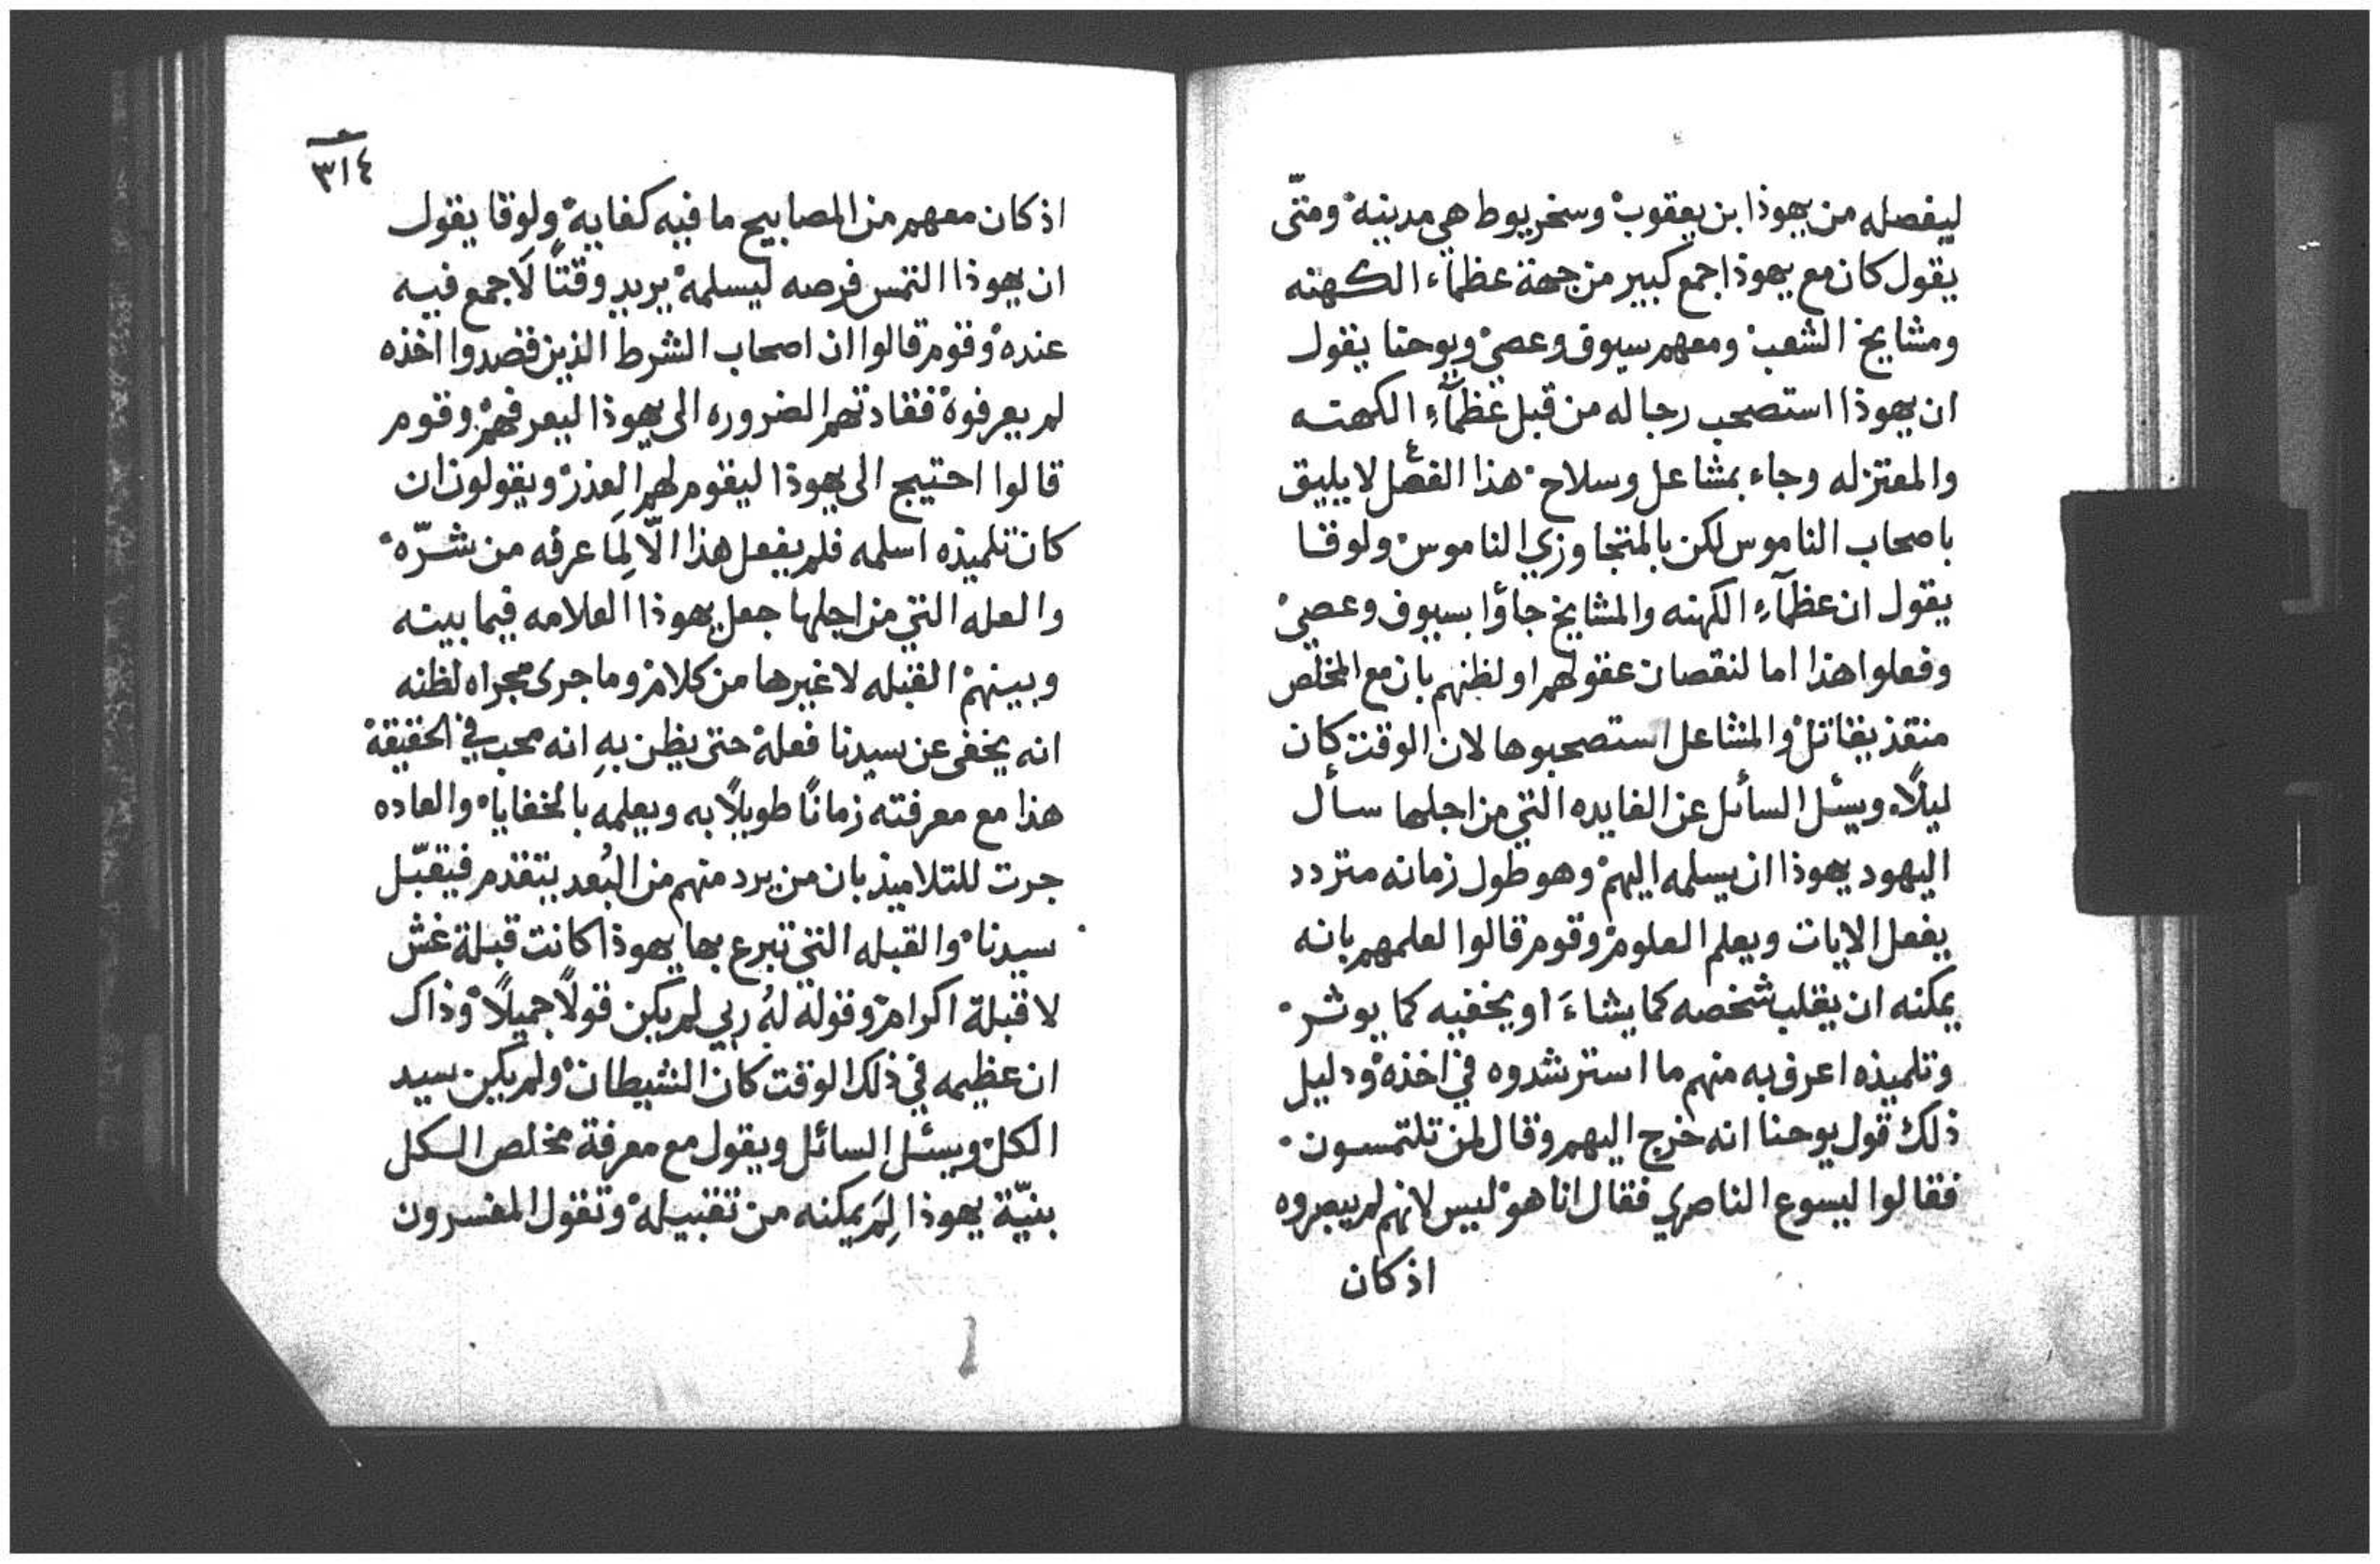 ليفصله من يهوذا بن يعقوب وسخريوط هي مدينه ومتّى
يقول كان مع يهوذا جمع كبير من جهة عظماء الكهنه
ومشايخ الشعب ومعهم سيوف وعصي ويوحنا يقول
ان يهوذا استصحب رجاله من قبل عظمآءِ الكهنه
والمعتزله وجاء بمشاعل وسلاح هذا الفعل لا يليق
باصحاب الناموس لكن بالمتجاوزي الناموس ولوقا
يقول ان عظمآءِ الكهنه والمشايخ جاؤا بسيوف وعصي
وفعلوا هذا اما لنقصان عقولهم او لظنهم بان مع المخلص
منقذ يقاتل والمشاعل استصحبوها لان الوقت كان
ليلًا ويسئل السائل عن الفايده التي من اجلها سأل
اليهود يهوذا ان يسلمه اليهم وهو طول زمانه متردد
يفعل الايات ويعلم العلوم وقوم قالوا لعلمهم بانه
يمكنه ان يقلب شخصه كما يشاءَ او يخفيه كما يوثر
وتلميذه اعرف به منهم ما استرشدوه في اخذه ودليل
ذلك قول يوحنا انه خرج اليهم وقال لمن تلتمسون
فقالوا ليسوع الناصري فقال انا هو ليس لانهم لم يبصروه
اذ كان
٣١٤
اذ كان معهم من المصابيح ما فيه كفايه ولوقا يقول
ان يهوذا التمس فرصه ليسلمه يريد وقتًا لا جمع فيه
عنده وقوم قالوا ان اصحاب الشرط الذين قصدوا اخذه
لم يعرفوه فقادتهم الضروره الى يهوذا ليعرفهم وقوم
قالوا احتيج الى يهوذا ليقوم لهم العذر ويقولون ان
كان تلميذه اسلمه فلم يفعل هذا الّا لِمَا عرفه من شرّه
والعله التي من اجلها جعل يهوذا العلامه فيما بينه
وبينهم القبله لا غيرها من كلام وما جرى مجراه لظنه
انه يخفى عن سيدنا فعله حتى يظن بهِ انه محب في الحقيقة
هذا مع معرفته زمانًا طويلًا به وبعلمه بالخفايا والعاده
جرت للتلاميذ بان من يرد منهم من البُعد يتقدم فيقبّل
سيدنا والقبله التي تبرع بها يهوذا كانت قبلة غش
لا قبلة اكرام وقوله لهُ ربي لم يكن قولًا جميلًا وذاك
ان عظيمه في ذلك الوقت كان الشيطان ولم يكن سيد
الكل ويسئل السائل ويقول مع معرفة مخلص الكل
بنيّة يهوذا لِمَ يمكنه من تقبيله وتقول المفسرون